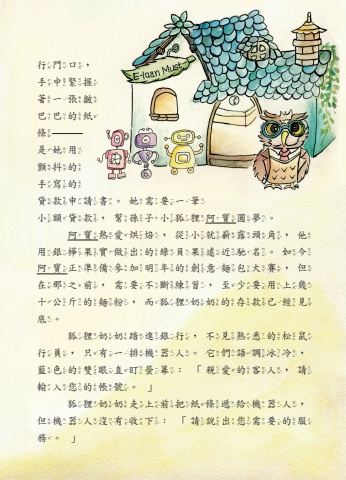 E-Luan Must
行門口，
手中緊握
著一張皺
巴巴的紙
條——
是她用
顫抖的
手寫的
貸款申請書。她需要一筆
小額貸款，幫孫子小狐狸阿寶圓夢。
阿寶熱愛烘焙，從小就嶄露頭角，他
用銀樺果實做出的綠貝果遠近馳名。如今
阿寶正準備參加明年的創意麵包大賽，但
在那之前，需要不斷練習，至少要用上幾
十公斤的麵粉，而狐狸奶奶的存款已經見
底。
狐狸奶奶踏進銀行，不見熟悉的松鼠
行員，只有一排機器人。它們語調冰冷，
藍色的雙眼直盯螢幕：「親愛的客人，請
輸入您的帳號。」
狐狸奶奶走上前把紙條遞給機器人，
但機器人沒有收下：「請說出您需要的服
務。」